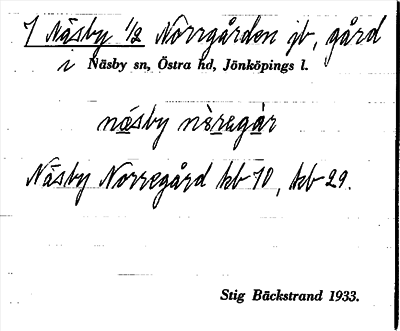 7 Näsby 1/2 Norrgården jb, gård
i Näsby sn, Östra hd, Jönköpings l.
näsby nòregàr
Näsby Norregård kb 10, hb 29.
Stig Bäckstrand 1933.